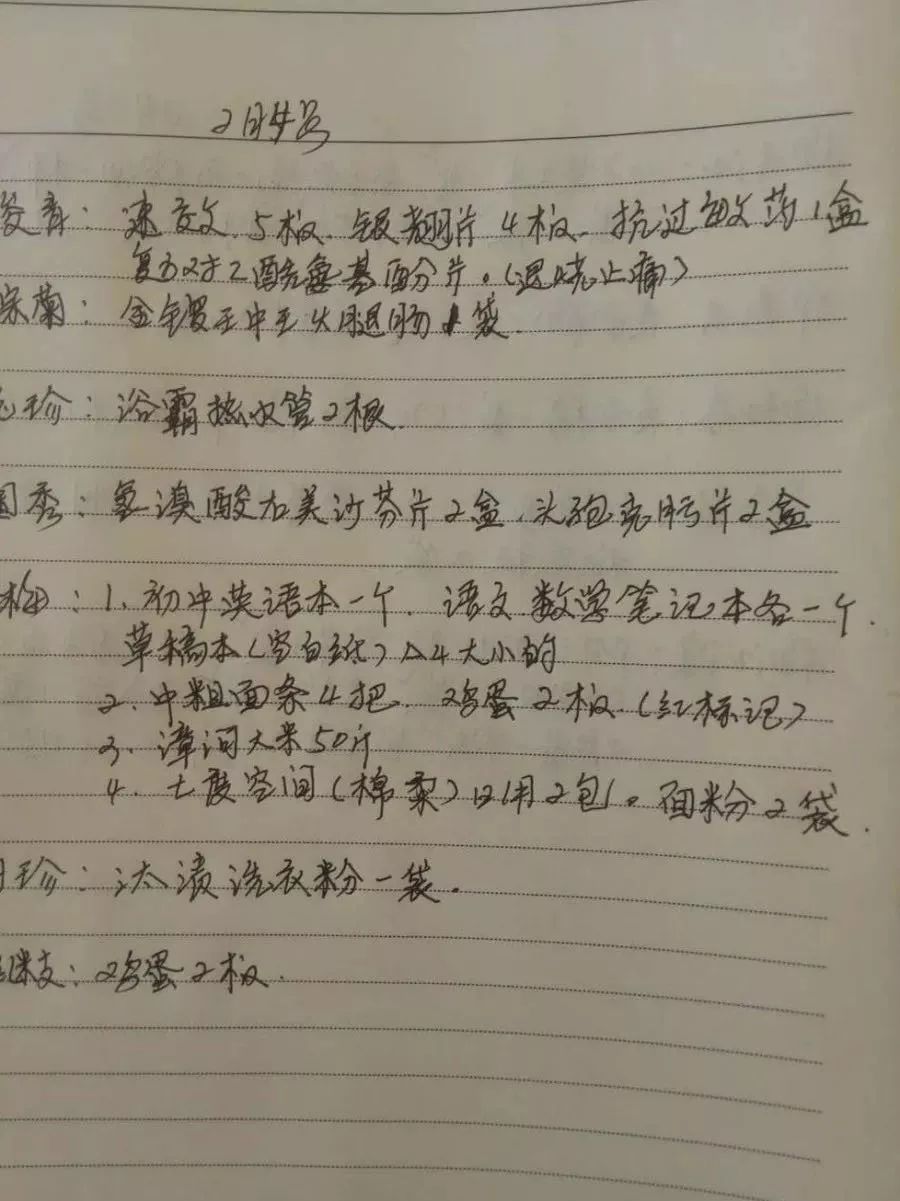 2月4号
青：速效 5板、银翘片 4板、抗过敏药1盒
复方对乙酰氨基酚分片。（退烧止痛）
兰：金锣王中王火腿肠 袋.
珍：浴霸热水管2根.
国秀：氢溴酸右美沙芬片2盒、头孢克肟片2盒
梅：1、初中英语本一个、语文数学笔记本各一个.
草稿本（空白纸）A4大小的
2、中粗面条4把、鸡蛋2板、（红标记）
3、漳河大米50斤
4、七度空间（棉柔）日用2包。面粉2袋.
珍：汰渍洗衣粉一袋.
枝：鸡蛋2板.